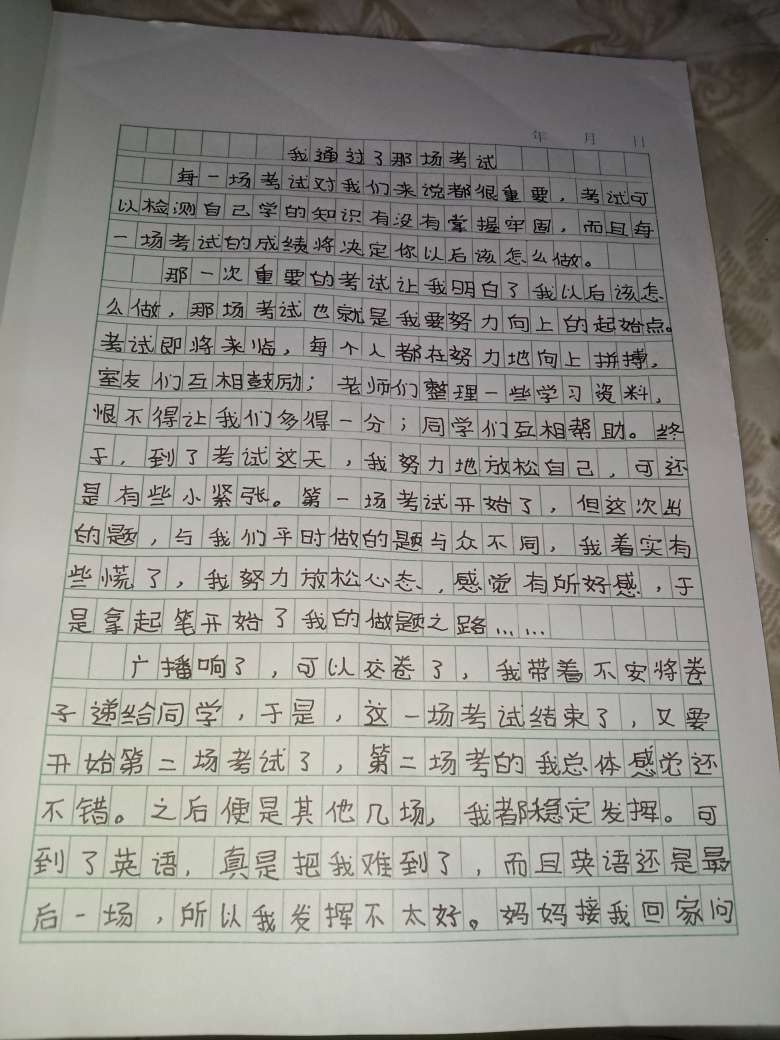 年 月 日
我通过了那场考试
每一场考试对我们来说都很重要，考试可
以检测自己学的知识有没有掌握牢固，而且每
一场考试的成绩将决定你以后该怎么做。
那一次重要的考试让我明白了我以后该怎
么做，那场考试也就是我要努力向上的起始点。
考试即将来临，每个人都在努力地向上拼搏，
室友们互相鼓励；老师们整理一些学习资料，
恨不得让我们多得一分；同学们互相帮助。终
于，到了考试这天，我努力地放松自己，可还
是有些小紧张。第一场考试开始了，但这次出
的题，与我们平时做的题与众不同，我着实有
些慌了，我努力放松心态，感觉有所好感，于
是拿起笔开始了我的做题之路……
广播响了，可以交卷了，我带着不安将卷
子递给同学，于是，这一场考试结束了，又要
开始第二场考试了，第二场考的我总体感觉还
不错。之后便是其他几场，我都稳定发挥。可
到了英语，真是把我难到了，而且英语还是最
后一场，所以我发挥不太好。妈妈接我回家问